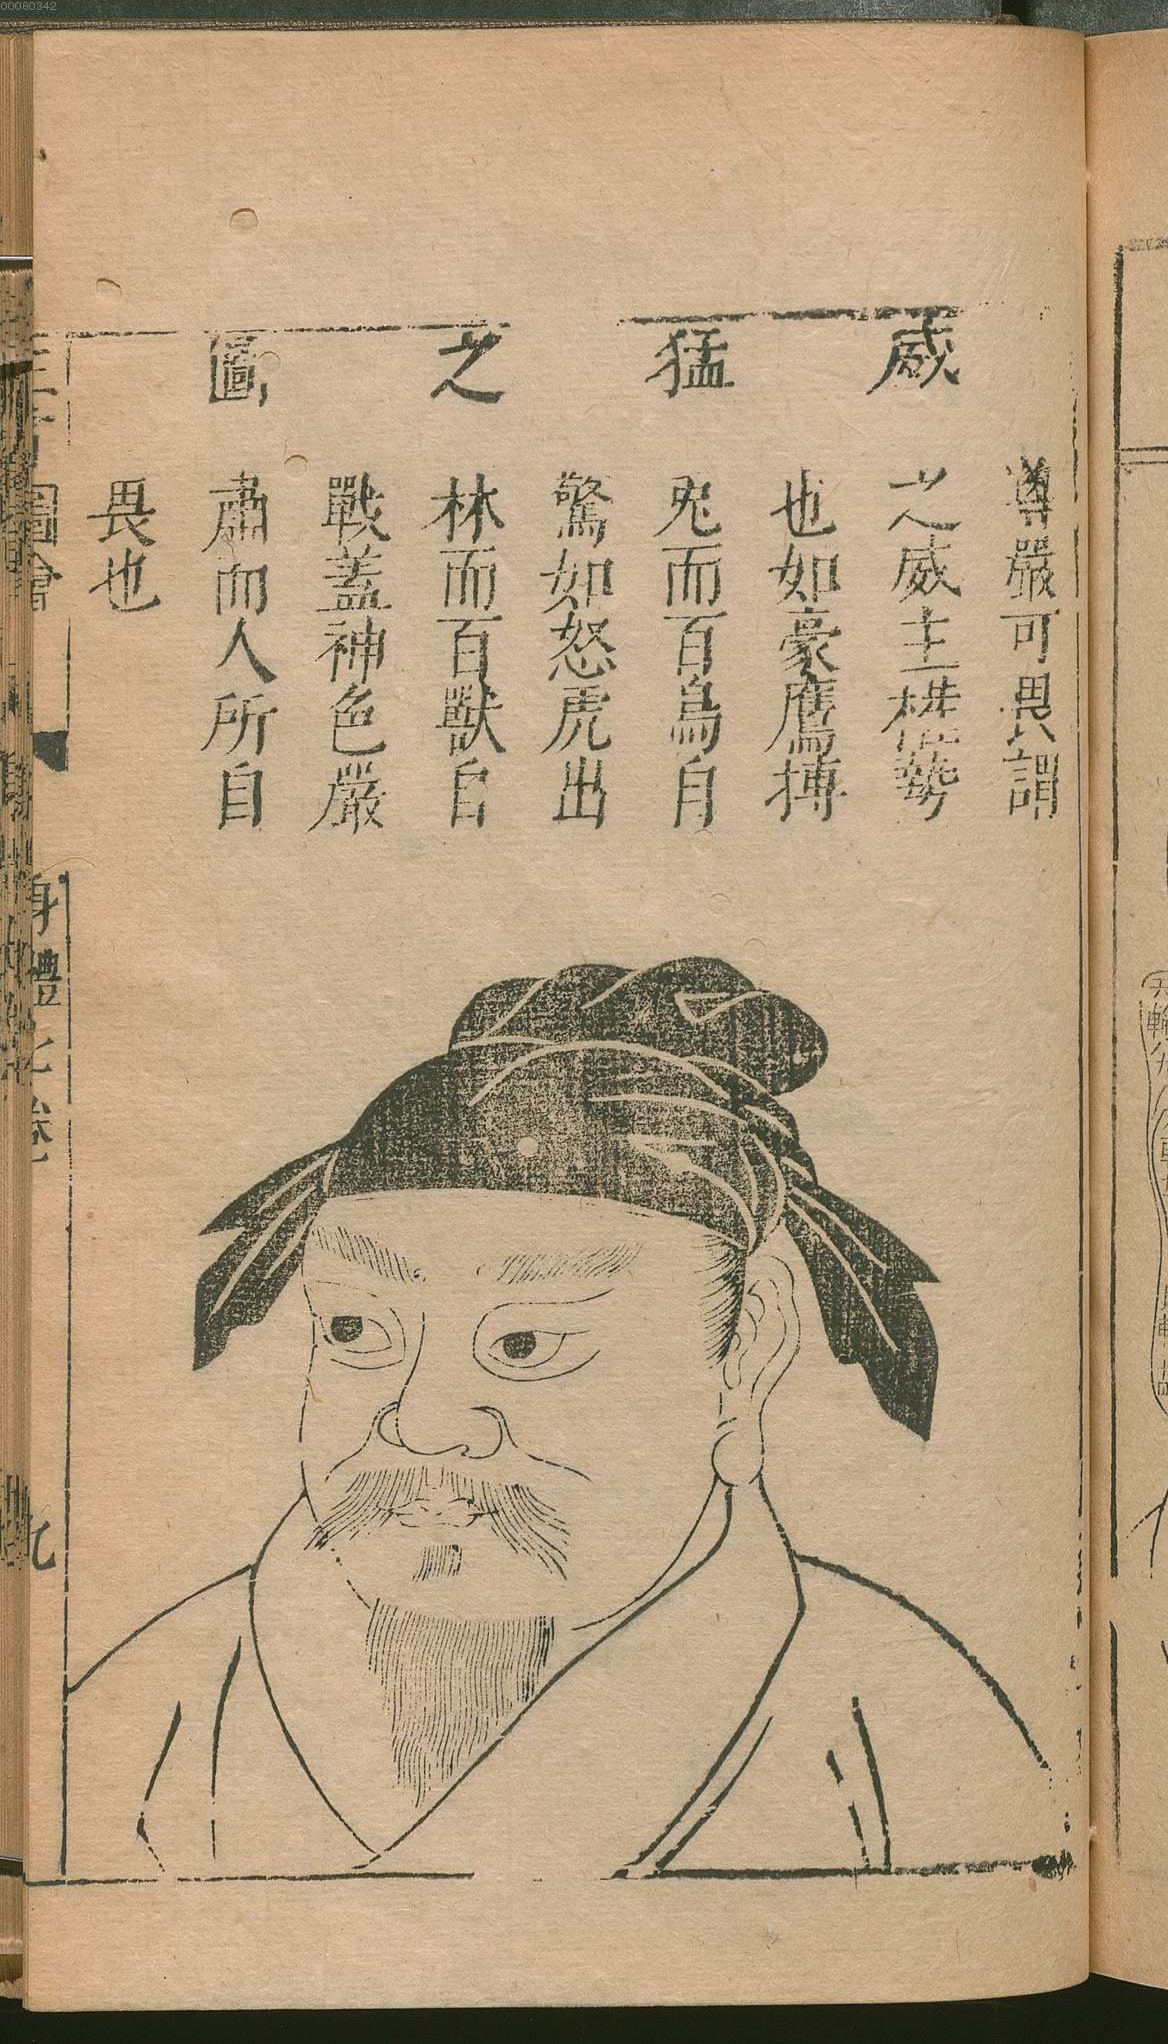 00060342
威猛之圖
尊嚴可畏謂
之威主權勢
也如豪鷹搏
兎而百鳥自
驚如怒虎出
林而百獸自
戰蓋神色嚴
肅而人所自
畏也
圖會
身體七卷
九